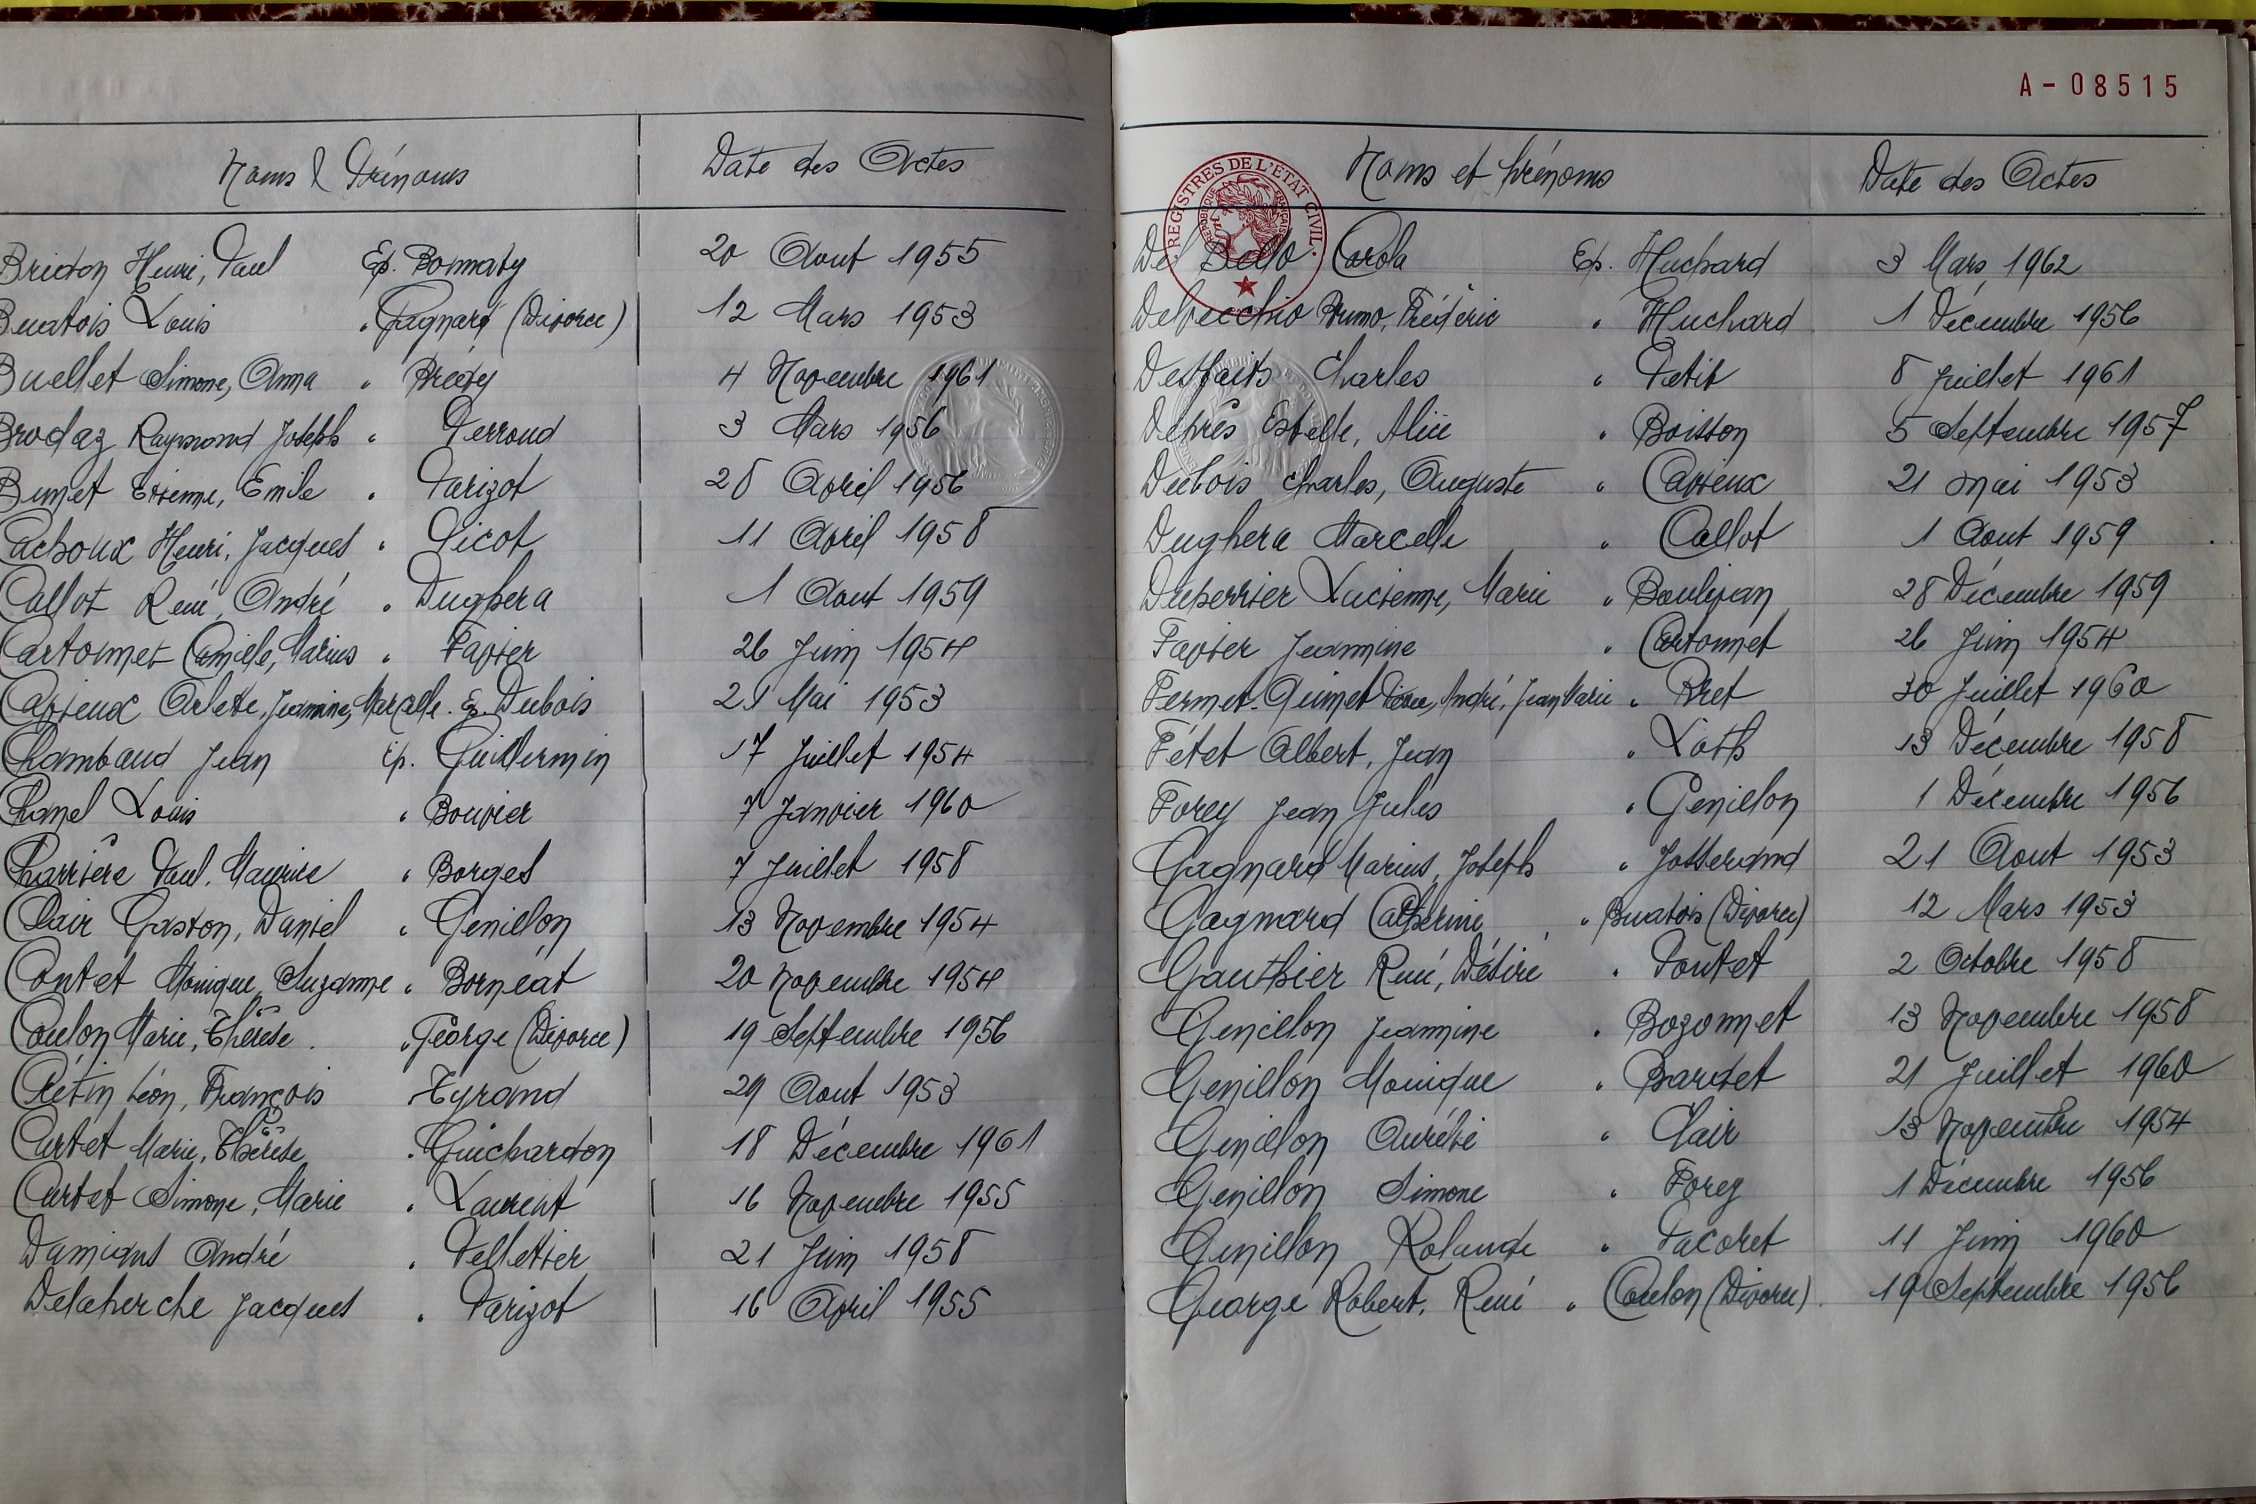 A-08515
Noms & Prénoms Date des Actes
Bridon Henri, Paul Ep. Bonnaty 20 Aout 1955
Buatois Louis " Gagnard (Divorce) 12 Mars 1953
Buellet Simone, Anna " Brédy 4 Novembre 1961
Brodaz Raymond Joseph " Perroud 3 Mars 1956
Bunet Etienne, Emile " Parizot 28 Avril 1956
Cachoux Henri, Jacques " Picot 11 Avril 1958
Callot René, André " Dughera 1 Aout 1959
Cartonnet Camille, Marius " Favier 26 Juin 1954
Cavieux Arlette, Jeannine, Marcelle. Ep. Dubois 21 Mai 1953
Chambaud Jean Ep. Guillermin 17 Juillet 1954
Chanel Louis " Bouvier 7 Janvier 1960
Charrière Paul, Maurice " Borges 7 Juillet 1958
Clair Gaston, Daniel " Genillon 13 Novembre 1954
Contet Monique Suzanne " Bornéat 20 Novembre 1954
Coulon Marie, Thérèse. " George (Divorce) 19 Septembre 1956
Crétin Léon, François " Tyrand 29 Aout 1953
Curtet Marie, Thérèse " Guichardon 18 Décembre 1961
Curtet Simone, Marie " Laurent 16 Novembre 1955
Damians André " Pelletier 21 Juin 1958
Delaherche Jacques " Parizot 16 Avril 1955
REGISTRES DE L'ETAT CIVIL
REPUBLIQUE FRANCAISE
Noms et prénoms Date des Actes
Del Bello Carola Ep. Huchard 3 Mars 1962
Delvecchio Bruno, Frédéric " Huchard 1 Décembre 1956
Desfaits Charles " Petit 8 Juillet 1961
Deprés Estelle, Alice " Boisson 5 Septembre 1957
Dubois Charles, Auguste " Cavieux 21 mai 1953
Dughera Marcelle " Callot 1 Aout 1959
Duperrier Lucienne, Marie " Boulivan 28 Décembre 1959
Favier Jeannine " Cartonnet 26 Juin 1954
Fermet-Quinet Pierre, André, Jean Marie " Bret 30 Juillet 1960
Fétet Albert, Jean " Loth 13 Décembre 1958
Forey Jean Jules " Genillon 1 Décembre 1956
Gagnard Marius, Joseph " Josserand 21 Aout 1953
Gagnard Catherine " Buatois (Divorce) 12 Mars 1953
Gauthier René, Désiré " Poutet 2 Octobre 1958
Genillon Jeannine " Bozonnet 13 Novembre 1958
Genillon Monique " Bardet 21 Juillet 1960
Genillon Aurélie " Clair 13 Novembre 1954
Genillon Simone " Forey 1 Décembre 1956
Genillon Rolande " Pacoret 11 Juin 1960
George Robert, René " Coulon (Divorce). 19 Septembre 1956